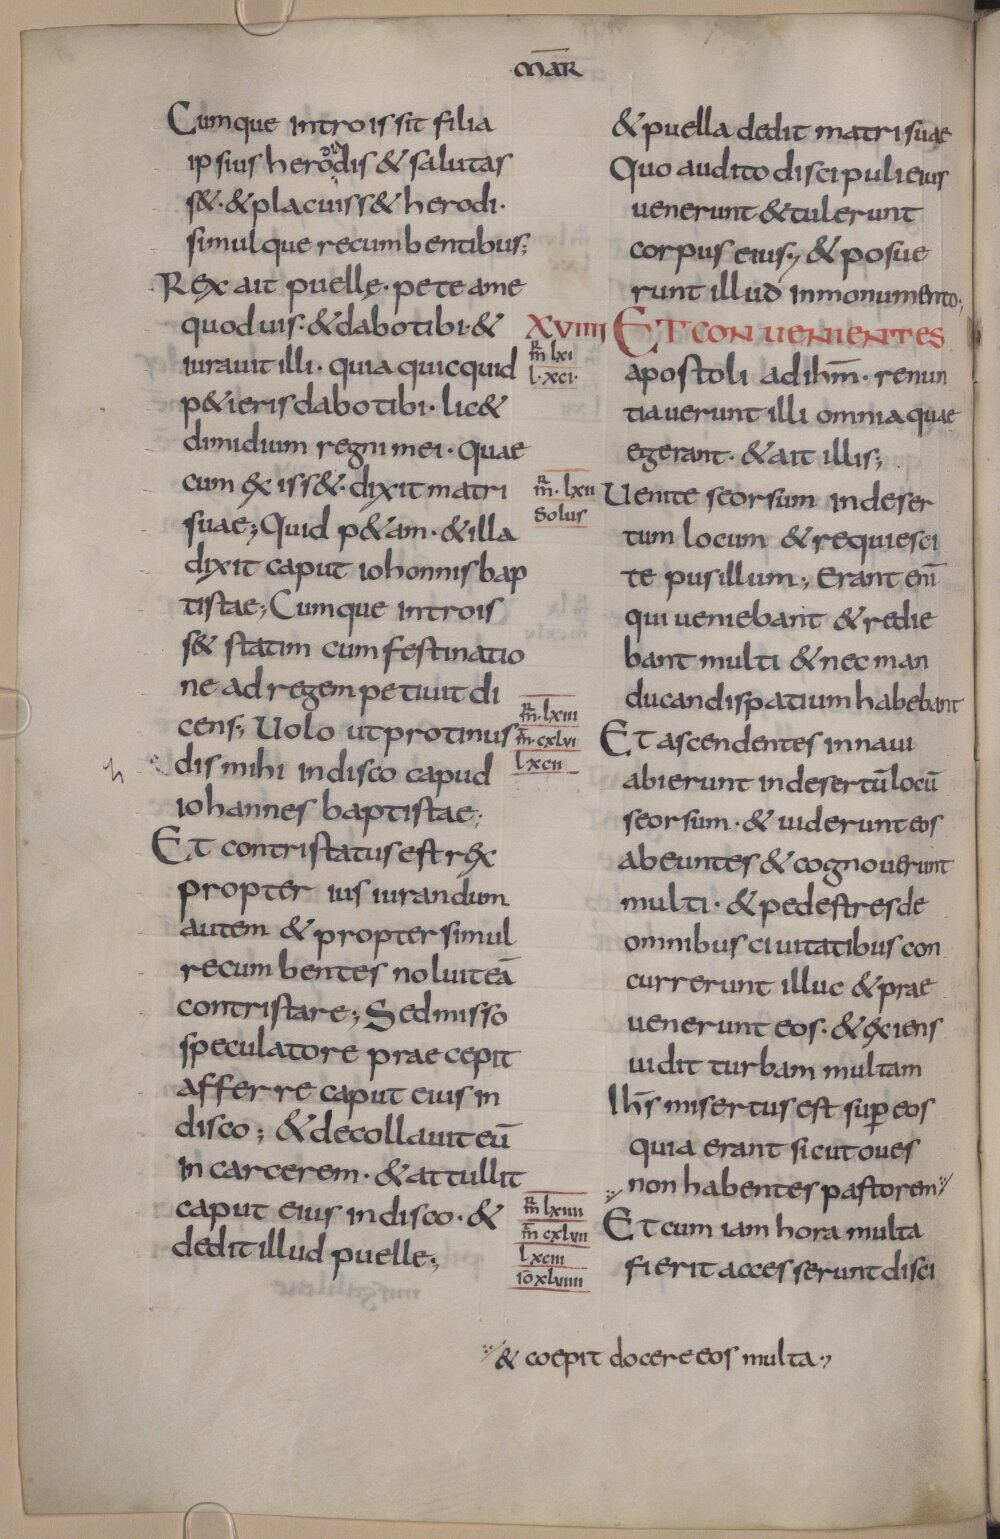 m̄ar
Cumque introissit filia
ipsius herodis & salutas
dia
s&· & placuiss& herodi·
simulque recumbentibus;
Rex ait puellę· pete ame
quod uis· & dabo tibi· &
iurauit illi· quia quicquid
p&ieris dabo tibi· lic&
dimidium regni mei· Quae
cum exiss&· dixit matri
suae; Quid p&am· & illa
dixit caput iohannis bap
tistae; Cumque introis
s& statim cum festinatio
ne ad regem petiuit di
cens; Uolo ut protinus
dis mihi in disco capud
iohannes baptistae;
Et contristatus est rex
propter ius iurandum
autem & propter simul
recumbentes noluit eā
contristare; Sed misso
speculatore praecepit
afferre caput eius in
disco; & decollauit eū
in carcerem· & attullit
caput eius in disco· &
dedit illud puelle;
& puella dedit matri suae
Quo audito discipuli eius
uenerunt & tulerunt
corpus eius; & posue
runt illud in monumento;
XVIIII ET CONUENIENTES
m̄ lxi
l·xci·
apostoli ad ihm̄· renun
tiauerunt illi omnia quae
egerant· & ait illis;
m̄· lxii
Solus
Uenite seorsum in deser
tum locum & requiesci
te pusillum; Erant enī
qui ueniebant & redie
bant multi & nec man
ducandi spatium habebant
m̄· lxiii
m̄· cxlvi
lxcii
Et ascendentes in naui
abierunt in desertū locū
seorsum· & uiderunt eos
abeuntes & cognouerunt
multi· & pedestres de
omnibus ciuitatibus con
currerunt illuc & prae
uenerunt eos· & exiens
uidit turbam multam
Ihs̄ misertus est sup̱ eos
quia erant sicut oues
non habentes pastorem
m̄ lxiiii
m̄ cxlvii
lxciii
iō xlviiii
Et cum iam hora multa
fierit accesserunt disci
& coepit docere eos multa;